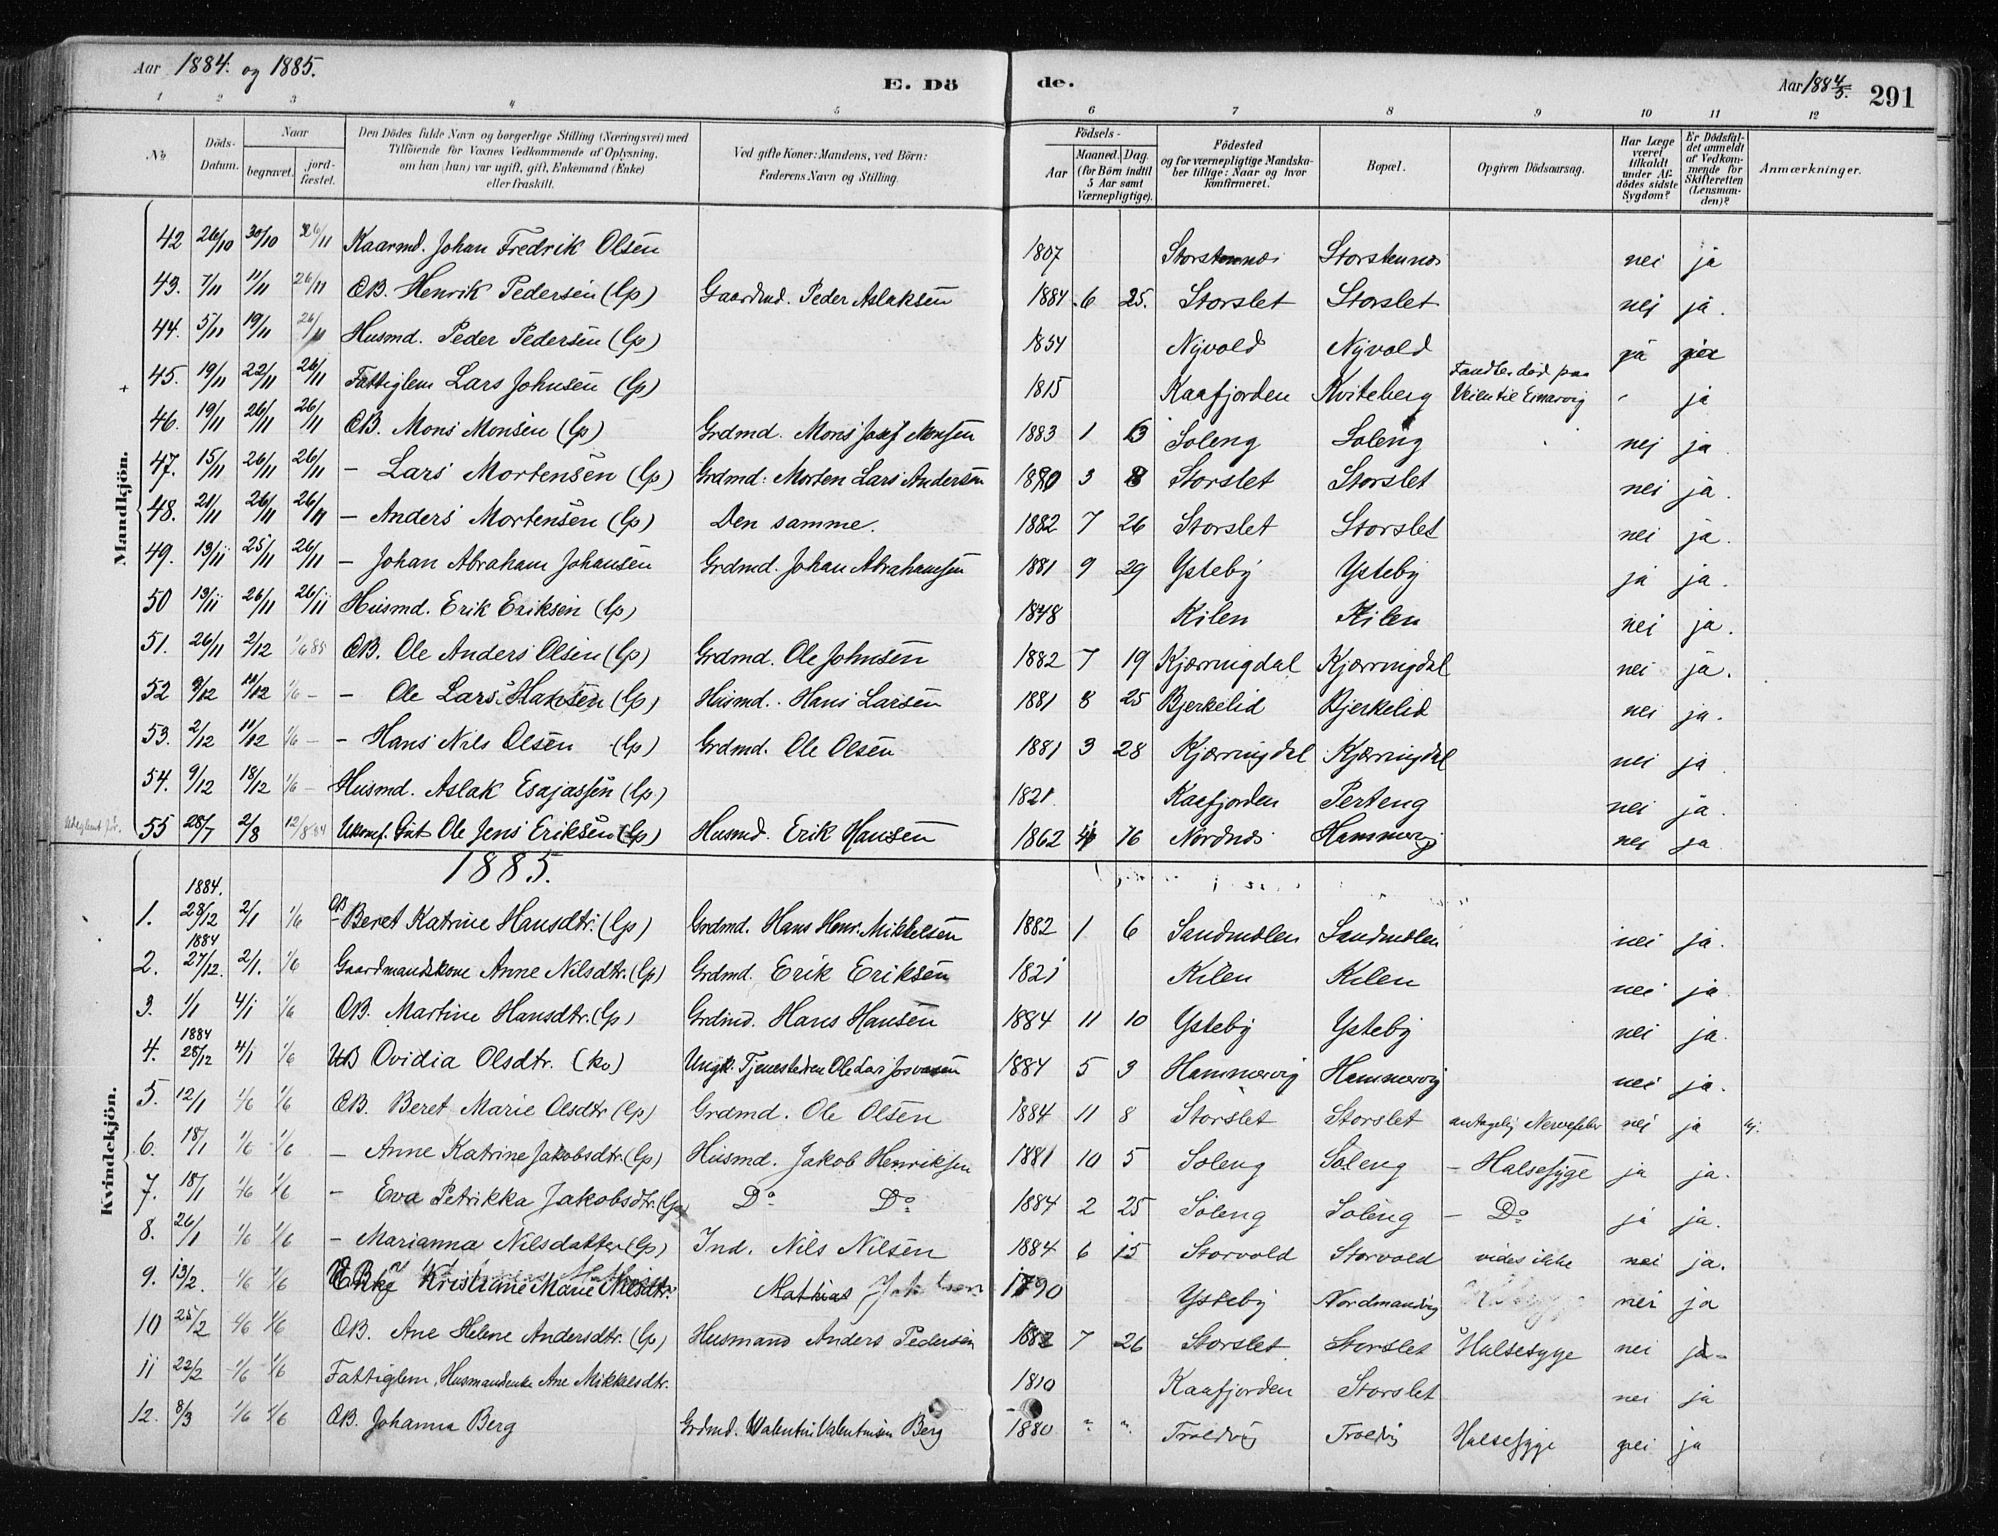 Aar 1884. og 1885.
E. Dö
de.
Aar 1884/5. 291
1 2 3 4 5 6 7 8 9 10 11 12
No
Döds-Datum.
Naar
begravet.
jord-fæstet.
Den Dödes fulde Navn og borgerlige Stilling (Næringsvei) med
Tilföiende for Voxnes Vedkommende af Oplysning,
om han (hun) var ugift, gift, Enkemand (Enke)
eller fraskilt.
Ved gifte Koner: Mandens, ved Börn:
Faderens Navn og Stilling.
Födsels-
Aar
Maaned. Dag.
(for Börn indtil
5 Aar samt
Værnepligtige).
Födested
og for værnepligtige Mandska-
ber tillige: Naar og hvor
konfirmeret.
Bopæl.
Opgiven Dödsaarsag.
Har Læge
været
tilkaldt
under Af-
dödes sidste
Sygdom?
Er Dödsfal-
det anmeldt
af Vedkom-
mende for
Skifteretten
(Lensman-
den)?
Anmærkninger.
Mandkjön.
42 26/10 30/10 26/11 Kaarmd. Johan Fredrik Olsen 1807 Storstennæs Storstennæs nei ja
43. 7/11 11/11 26/11 ÆB. Henrik Pedersen (lp) Gaardmd. Peder Aslaksen 1884 6 25. Storslet Storslet nei ja.
44. 5/11 19/11 26/11 Husmd. Peder Pedersen (lp) 1854 Nyvold Nyvold ja
45. 19/11 22/11 26/11 Fattiglem Lars Johnsen (lp) 1815 Kaafjorden Kviteberg Fandtes död paa Veien til ja
46. 19/11 26/11 26/11 ÆB. Mons Monsen (lp) Grdmd. Mons Josef Monsen 1883 1 Soleng Soleng nei ja
47. 15/11 26/11 26/11 - Lars Mortensen (lp) Grdmd. Morten Lars Andersen 3 8 Storslet Storslet nei ja.
48. 21/11 26/11 26/11 - Anders Mortensen (lp) Den samme. 1882 7 26 Storslet Storslet nei ja.
49. 13/11 25/11 26/11 - Johan Abraham Johansen Grdmd. Johan Abrahamsen 1881 9 29 Ysteby Ysteby ja ja.
50 13/11 26/11 26/11 Husmd. Erik Eriksen (lp) 1848 Kilen Kilen nei ja.
51. 26/11 2/12 1/6 85 ÆB. Ole Anders Olsen (lp) Grdmd. Ole Johnsen 1882 7 19 Kjærringdal Kjærringdal nei ja.
52 9/12 11/12 1/6 - - Ole Lars Hansen (lp) Husmd. Hans Larsen 1881 8 25 Bjerkelid Bjerkelid nei ja.
53. 2/12 11/12 1/6 - - Hans Nils Olsen (lp) Grdmd. Ole Olsen 1881 3 28 Kjærringdal Kjærringdal nei ja
54. 9/12 18/12 1/6 - Husmd. Aslak Esajassen (lp) 1821 Kaafjorden Perteng nei ja.
55 28/7 2/8 12/8 84 Ole Jens Eriksen (lp) Husmd. Erik Hansen 1862 16 Nordnæs Hammervig nei ja
1885.
Kvindekjön.
1. 1884. 28/12 2/1 1/6 ÆB Beret Katrine Hansdtr. (lp) Grdmd. Hans Henr. Mikkelsen 1882 1 6 Sandmælen Sandmælen nei ja.
2. 1884 27/12. 2/1. 1/6 Gaardmandskone Anne Nilsdtr. (lp) Grdmd. Erik Eriksen 1821 Kilen Kilen nei ja
3. 1/1 4/1 1/6 ÆB. Martine Hansdtr. (lp) Grdmd. Hans Hansen 1884 11 10 Ysteby Ysteby nei ja.
4. 1884 28/12 4/1 1/6 UB Ovidia Olsdtr. (kv) Ungk. Tjenestedren Ole Lars 1884 5 3 Hammervig Hammervig nei ja.
5. 12/1 1/6 1/6 ÆB. Beret Marie Olsdtr (lp) Grdmd. Ole Olsen 1884 11 8 Storslet Storslet antagelig Nervefeber nei ja
6. 18/1 1/6 1/6 - Anne Katrine Jakobsdtr. (lp) Husmd. Jakob Henriksen 1881 10 5 Soleng Soleng - Halsesyge ja ja.
7. 18/1 1/6 1/6 - Eva Petrikka Jakobsdtr. (lp) Do Do 1884 2 25 Soleng Soleng - Do ja ja.
8. 26/1 1/6 1/6 - Marianna Nilsdatter (lp) Ind. Nils Nilsen 1884 6 15 Storvold Storvold vides ikke nei ja.
9. 13/2. 1/6 1/6 Kristiane Marie Nilsdtr. Mathias 1790 Ysteby Nordmandvig nei ja
10 25/2 1/6 1/6 ÆB. Ane Helene Andersdtr. (lp) Husmand Anders Pedersen 1882 7 26 Storslet Storslet Halsesyge nei ja
11 22/2 1/6 1/6 Fattiglem, Husmandenke Ane Mikkelsdtr. 1810 Kaafjorden Storslet nei ja
12. 8/3 1/6 1/6 ÆB. Johanna Berg Grdmd. Valentin Valentinsen Berg 1880 " " Troldvig Troldvig Halsesyge nei ja